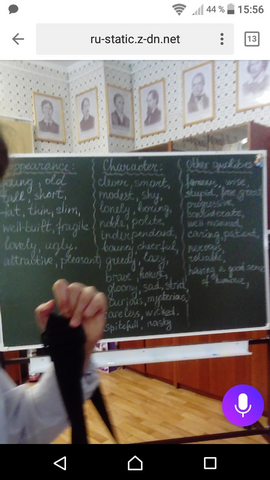 44 % 15:56
ru-static.z-dn.net
13
Appearance:
young, old
tall, short,
fat, thin, slim,
well-built, fragile
lovely, ugly.
attractive, pleasant,
Character:
clever, smart,
modest, shy,
lonely, boring,
noble, polite,
independent,
cheerful,
greedy, lazy,
brave, honest,
gloomy, sad, strict,
curious, mysterious,
careless, wicked.
spitefull, noisy
Other qualities:
famous, wise,
stupid, great
progressive,
considerate,
well-mannered,
caring, patient,
nervous,
reliable,
having a good sense
of humour,